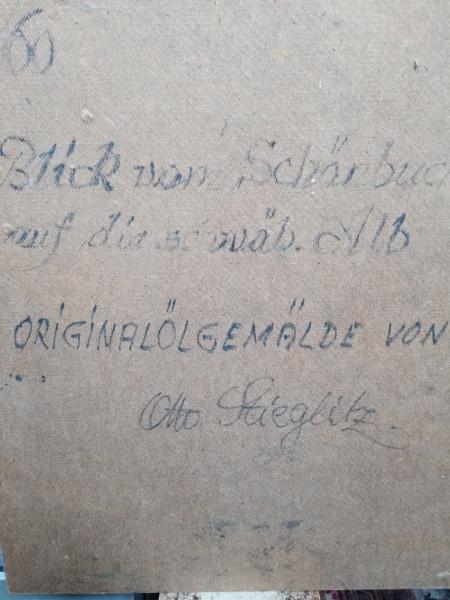 60
Blick vom Schönbuc
auf die schwäb. Alb
ORIGINALÖLGEMÄLDE VON
Otto Stieglitz